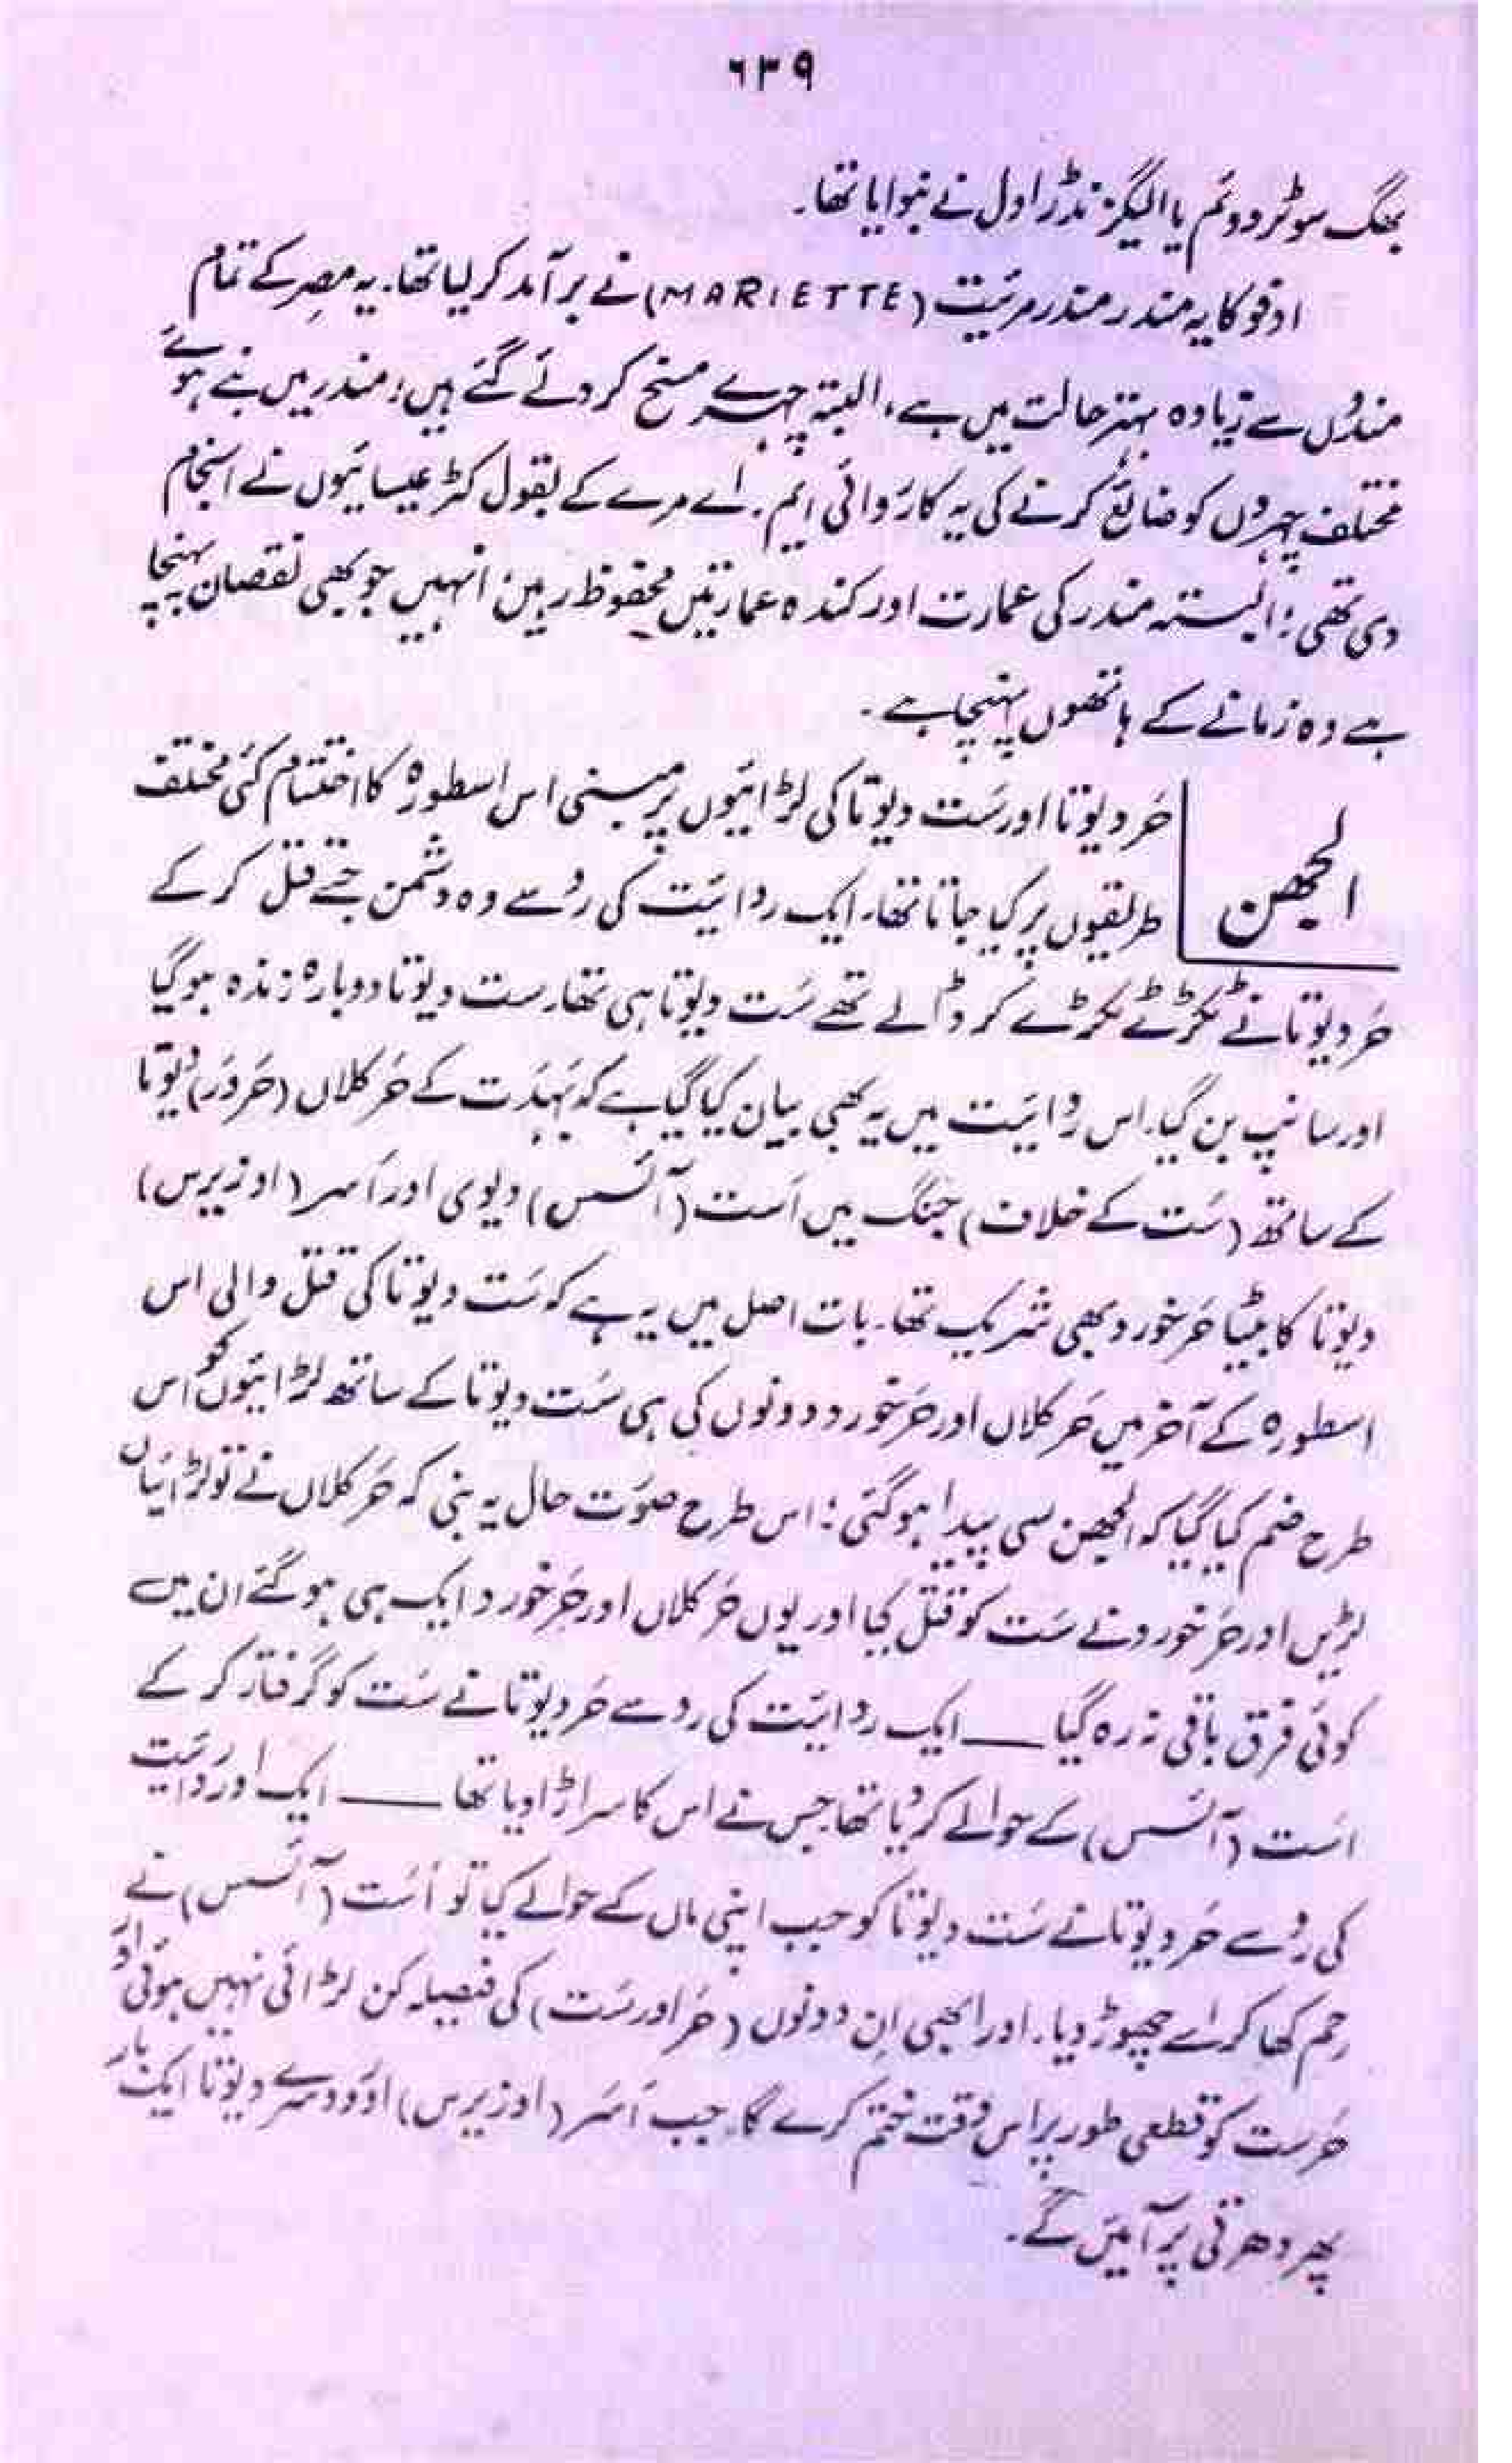 ۶۳۹
بھگ سوٹر دوئم یا الیگزنڈر اول نے بنوایا تھا۔
ادفو کا یہ مندر مندر مرئیت (MARIETTE) نے برآمد کر لیا تھا۔ یہ مصر کے تمام
مندروں سے زیادہ بہتر حالت میں ہے، البتہ چہرے مسخ کر دئے گئے ہیں؛ مندر میں بنے ہوئے
مختلف چہروں کو ضائع کرنے کی یہ کارروائی ایم۔ اے مرے کے بقول کٹر عیسائیوں نے انجام
دی تھی؛ البتہ مندر کی عمارت اور کندہ عمارتیں محفوظ رہیں؛ انہیں جو بھی نقصان پہنچا
ہے وہ زمانے کے ہاتھوں پہنچا ہے۔
الجھن
حَر دیوتا اور سَت دیوتا کی لڑائیوں پر مبنی اس اسطورہ کا اختتام کئی مختلف
طریقوں پر کیا جاتا تھا۔ ایک روائیت کی رُو سے وہ دشمن جسے قتل کر کے
حَر دیوتا نے ٹکڑے ٹکڑے کر ڈالے تھے سَت دیوتا ہی تھا۔ ست دیوتا دوبارہ زندہ ہو گیا
اور سانپ بن گیا۔ اس روائیت میں یہ بھی بیان کیا گیا ہے کہ بَہدَت کے حَر کلاں (حَر وَر) دیوتا
کے ساتھ (سَت کے خلاف) جنگ میں اَست (آئسس) دیوی اور اَسر (اوزیرس)
دیوتا کا بیٹا حَر خورد بھی شریک تھا۔ بات اصل میں یہ ہے کہ سَت دیوتا کی قتل والی اس
اسطورہ کے آخر میں حَر کلاں اور حَر خورد دونوں کی ہی سَت دیوتا کے ساتھ لڑائیوں کو اس
طرح ضم کیا گیا کہ الجھن سی پیدا ہو گئی؛ اس طرح صورت حال یہ بنی کہ حَر کلاں نے تو لڑائیاں
لڑیں اور حَر خورد نے سَت کو قتل کیا اور یوں حَر کلاں اور حَر خورد ایک ہی ہو گئے ان میں
کوئی فرق باقی نہ رہ گیا ــــ ایک روائیت کی رو سے حَر دیوتا نے سَت کو گرفتار کر کے
اَست (آئسس) کے حوالے کر دیا تھا جس نے اس کا سر اڑا دیا تھا ــــ ایک اور روائیت
کی رُو سے حَر دیوتا نے سَت دیوتا کو جب اپنی ماں کے حوالے کیا تو اَست (آئسس) نے
رحم کھا کر اسے چھوڑ دیا۔ اور ابھی اِن دونوں (حَر اور سَت) کی فیصلہ کن لڑائی نہیں ہوئی اور
حَر ست کو قطعی طور پر اس وقت ختم کرے گا۔ جب اَسَر (اوزیرس) اور دوسرے دیوتا ایک بار
پھر دھرتی پر آئیں گے۔